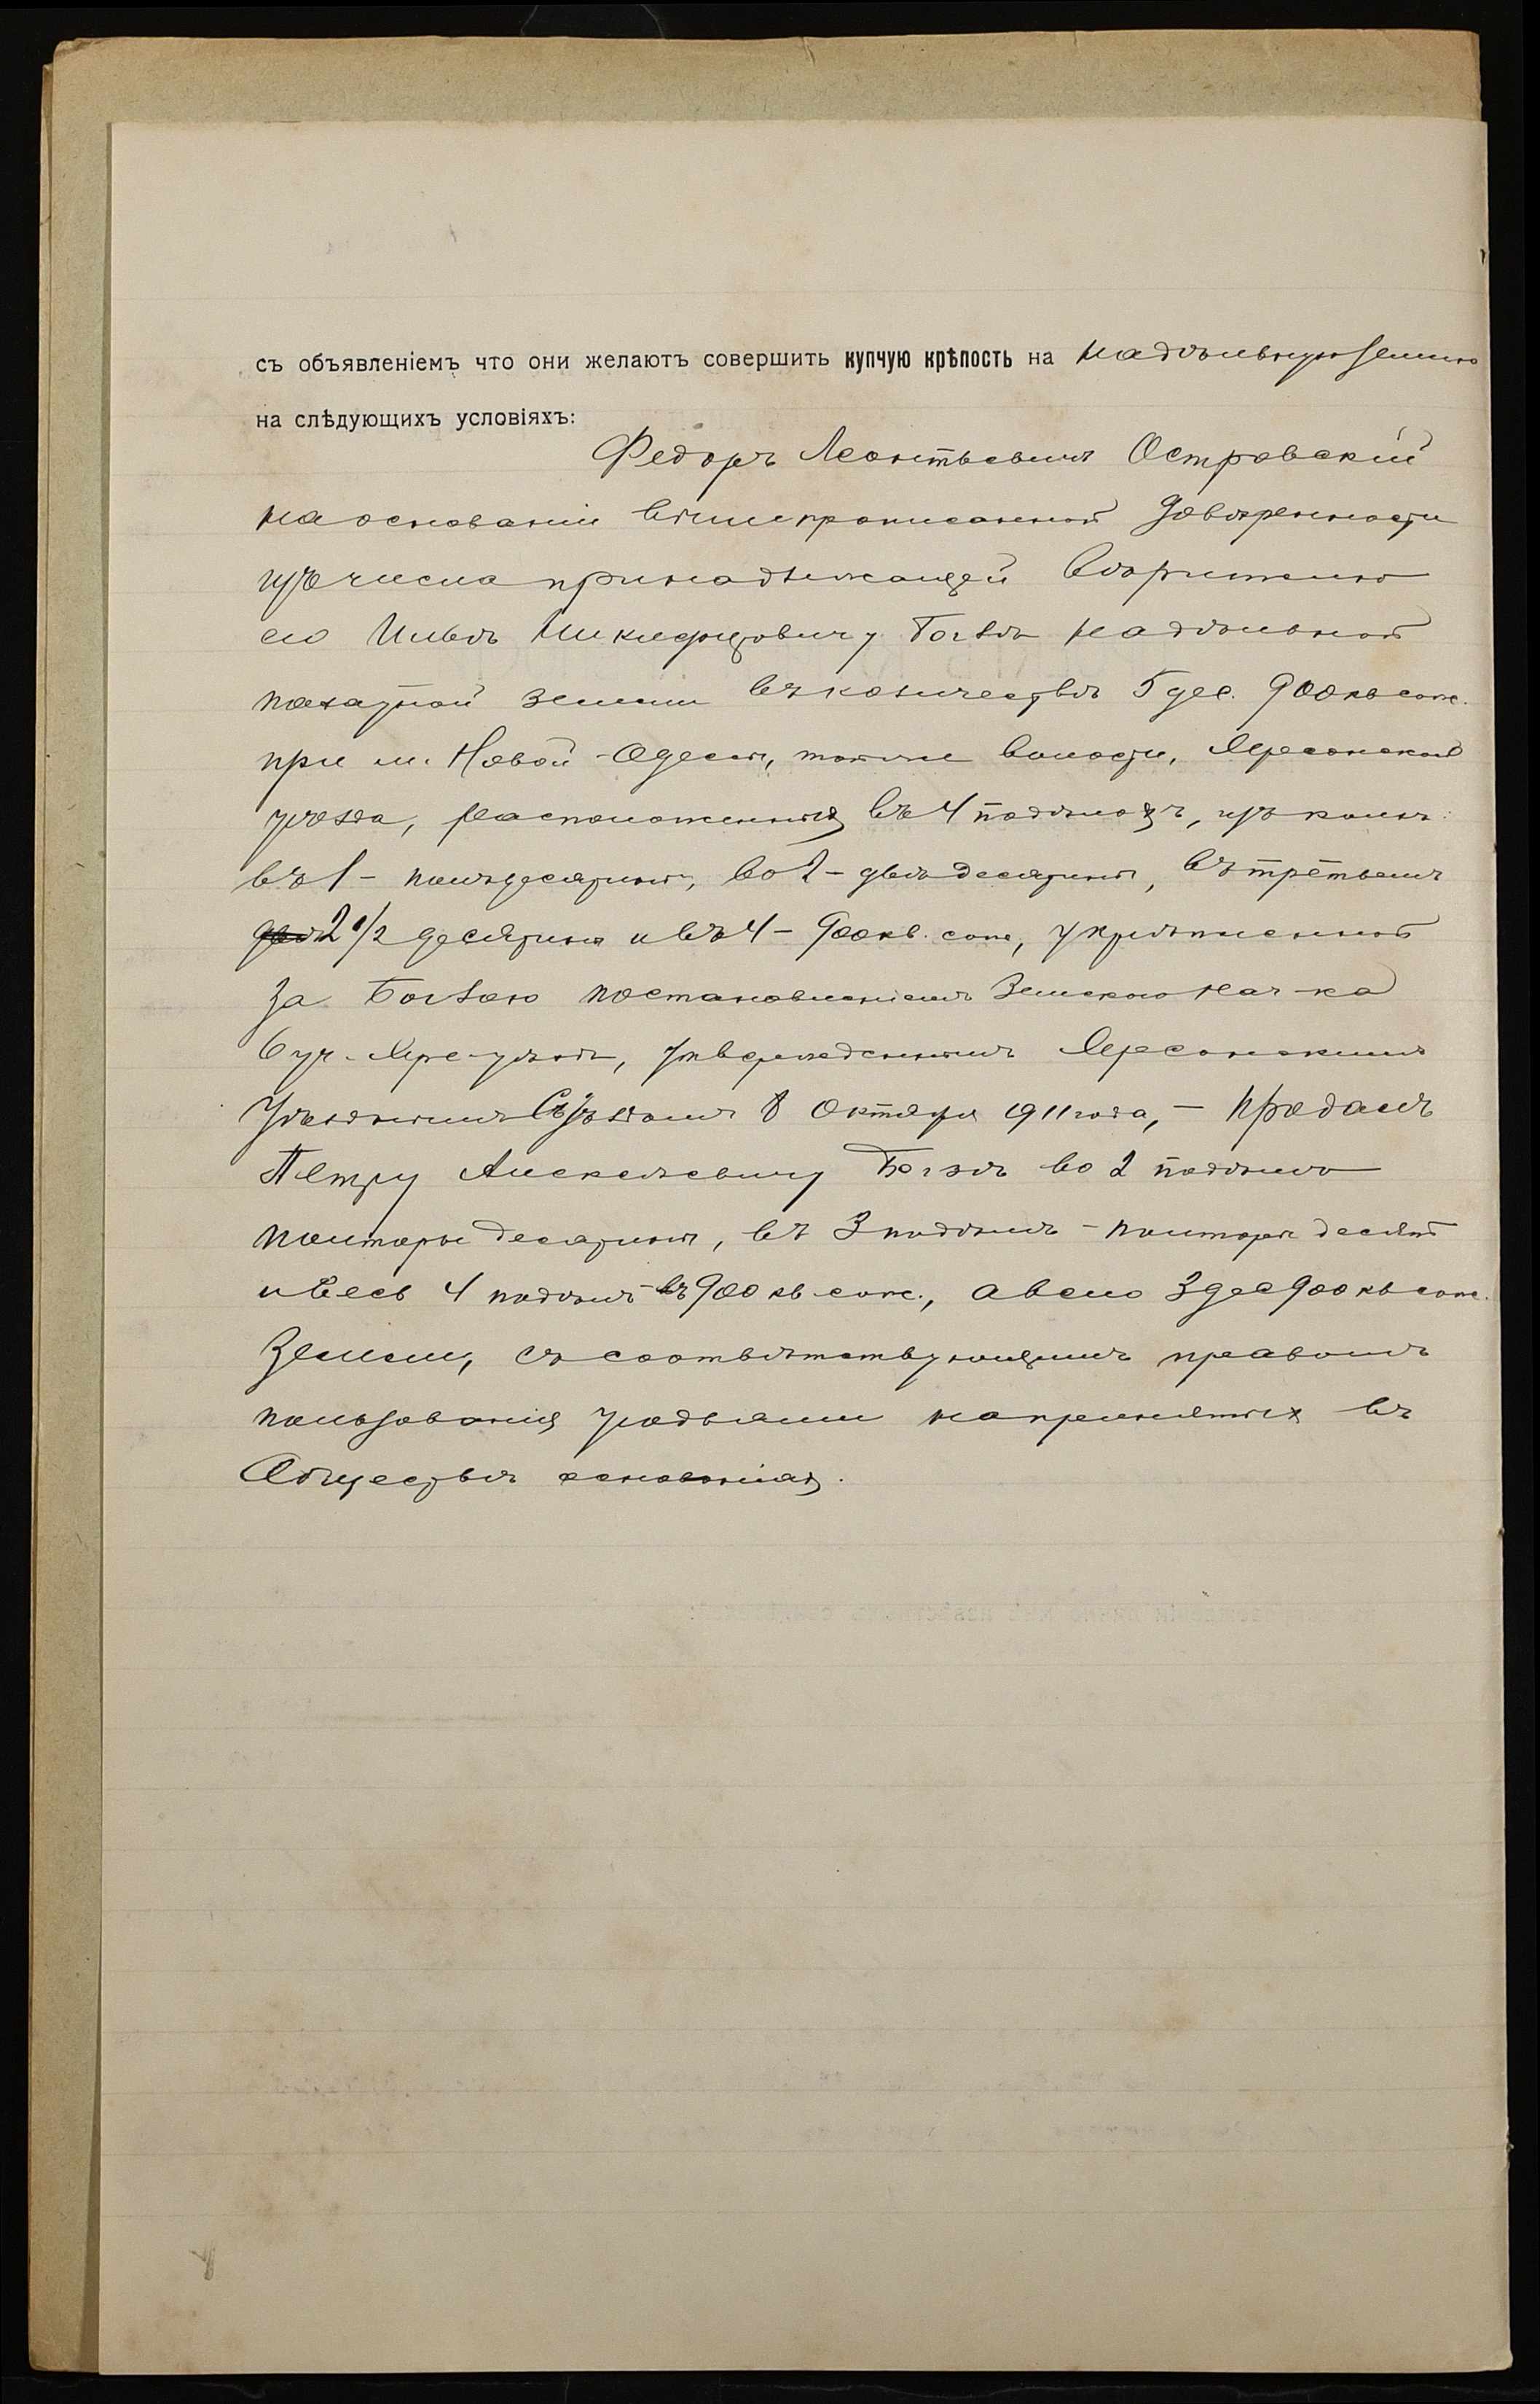 съ объявленіемъ что они желаютъ совершить купчую крѣпость на надѣльную землю
на слѣдующихъ условіяхъ:
Федоръ Леонтьевичъ Островскій
на основаніи вышепрописанной довѣренности
изъ числа принадлежащей вѣрителю
его Ильѣ Никифоровичу Богзѣ надѣльной
пахатной земли въ количествѣ 5 дес. 900 кв саж.
при м. Новой-Одессѣ, тойже волости, Херсонскаго
уѣзда, расположенныя въ 4 подѣлахъ, изъ коихъ:
въ 1 - полъ десятины, во 2 - двѣ десятины, въ третьемъ
двѣ 2 1/2 десятины и въ 4 - 900 кв. саж, укрѣпленной
за Богзою постановленіемъ Земскаго Нач-ка
6 уч. Хер-уѣзда, утвержденнымъ Херсонскимъ
Уѣзднымъ Съѣздомъ 8 Октября 1911 года, - продалъ
Петру Алексѣевичу Богзѣ во 2 подѣлѣ
полторы десятины, въ 3 подѣлѣ - полторы десят
и весь 4 подѣлъ въ 900 кв саж., а всего 3 дес 900 кв саж.
земли, съ соотвѣтствующимъ правомъ
пользованія угодьями на принятыхъ въ
Обществѣ основаніяхъ.